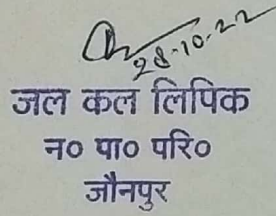 28-10-22
जल कल लिपिक
न० पा० परि०
जौनपुर